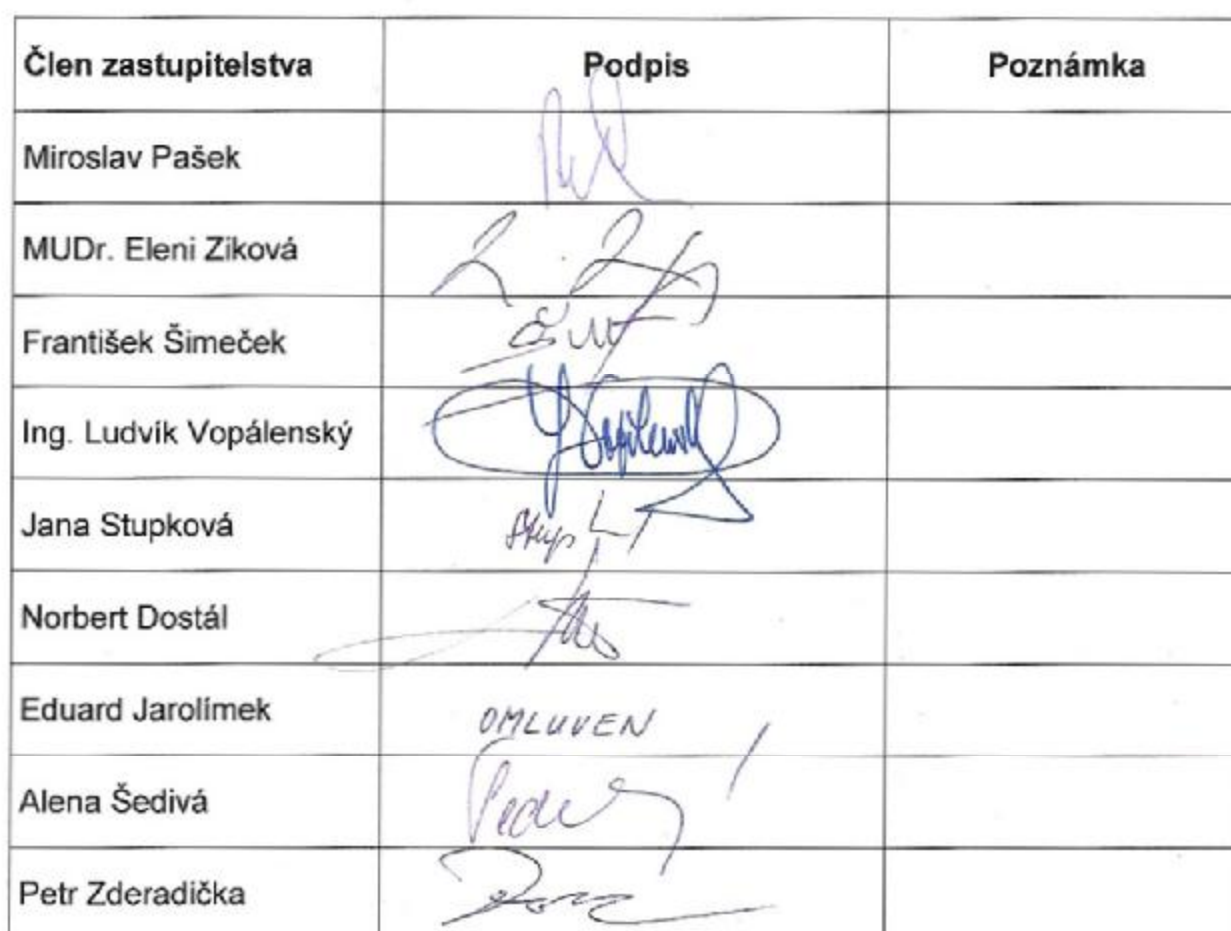 Člen zastupitelstva Podpis Poznámka
Miroslav Pašek
MUDr. Eleni Ziková
František Šimeček
Ing. Ludvík Vopálenský
Jana Stupková
Norbert Dostál
Eduard Jarolímek OMLUVEN
Alena Šedivá
Petr Zderadička